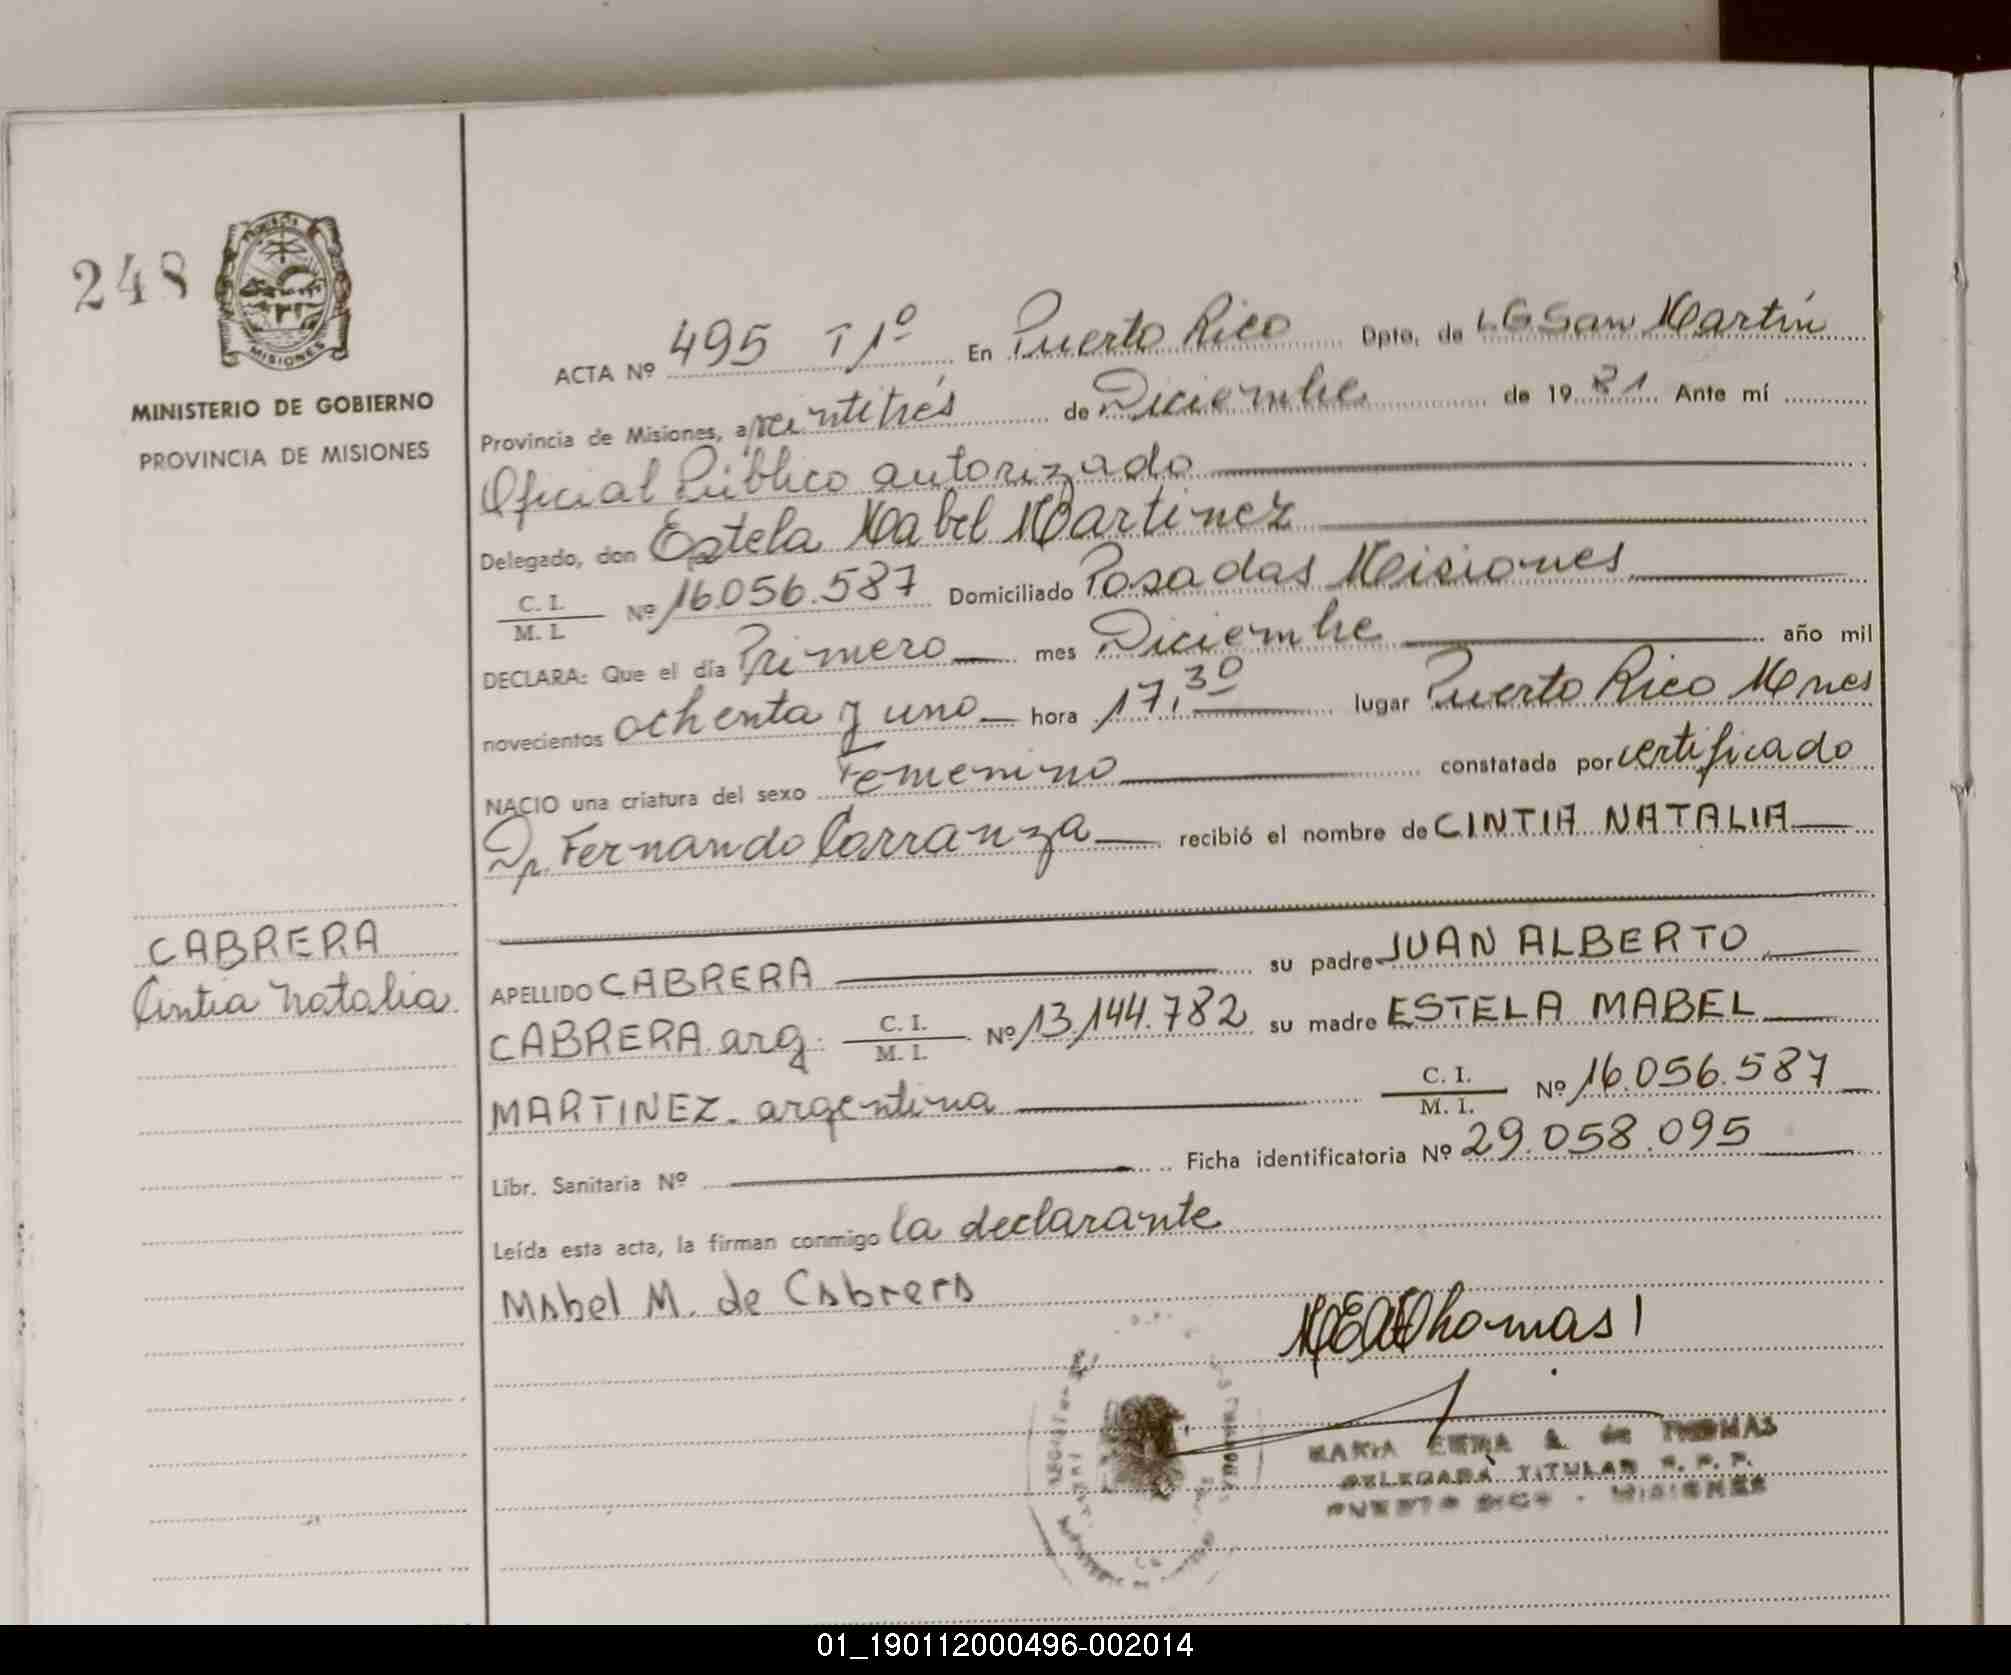 248
MISIONES
MINISTERIO DE GOBIERNO
PROVINCIA DE MISIONES
ACTA Nº 495 T 1º En Puerto Rico Dpto. de L G San Martín
Provincia de Misiones, a veintitrés de Diciembre de 1981 Ante mí
Oficial Público autorizado
Delegado, don Estela Mabel Martinez
C. I. / M. I. Nº 16.056.587 Domiciliado Posadas Misiones
DECLARA: Que el día Primero mes Diciembre año mil
novecientos ochenta y uno hora 17,30 lugar Puerto Rico Mnes
NACIO una criatura del sexo Femenino constatada por certificado
Dr. Fernando Carranza recibió el nombre de CINTIA NATALIA
CABRERA
Cintia Natalia
APELLIDO CABRERA su padre JUAN ALBERTO
CABRERA arg. C. I. / M. I. Nº 13.144.782 su madre ESTELA MABEL
MARTINEZ. argentina C. I. / M. I. Nº 16.056.587
Libr. Sanitaria Nº Ficha identificatoria Nº 29.058.095
Leída esta acta, la firman conmigo la declarante
Mabel M. de Cabrera
MEA Thomas
MARIA EMMA A. de THOMAS
DELEGADA TITULAR R. P. P.
PUERTO RICO - MISIONES
01_190112000496-002014